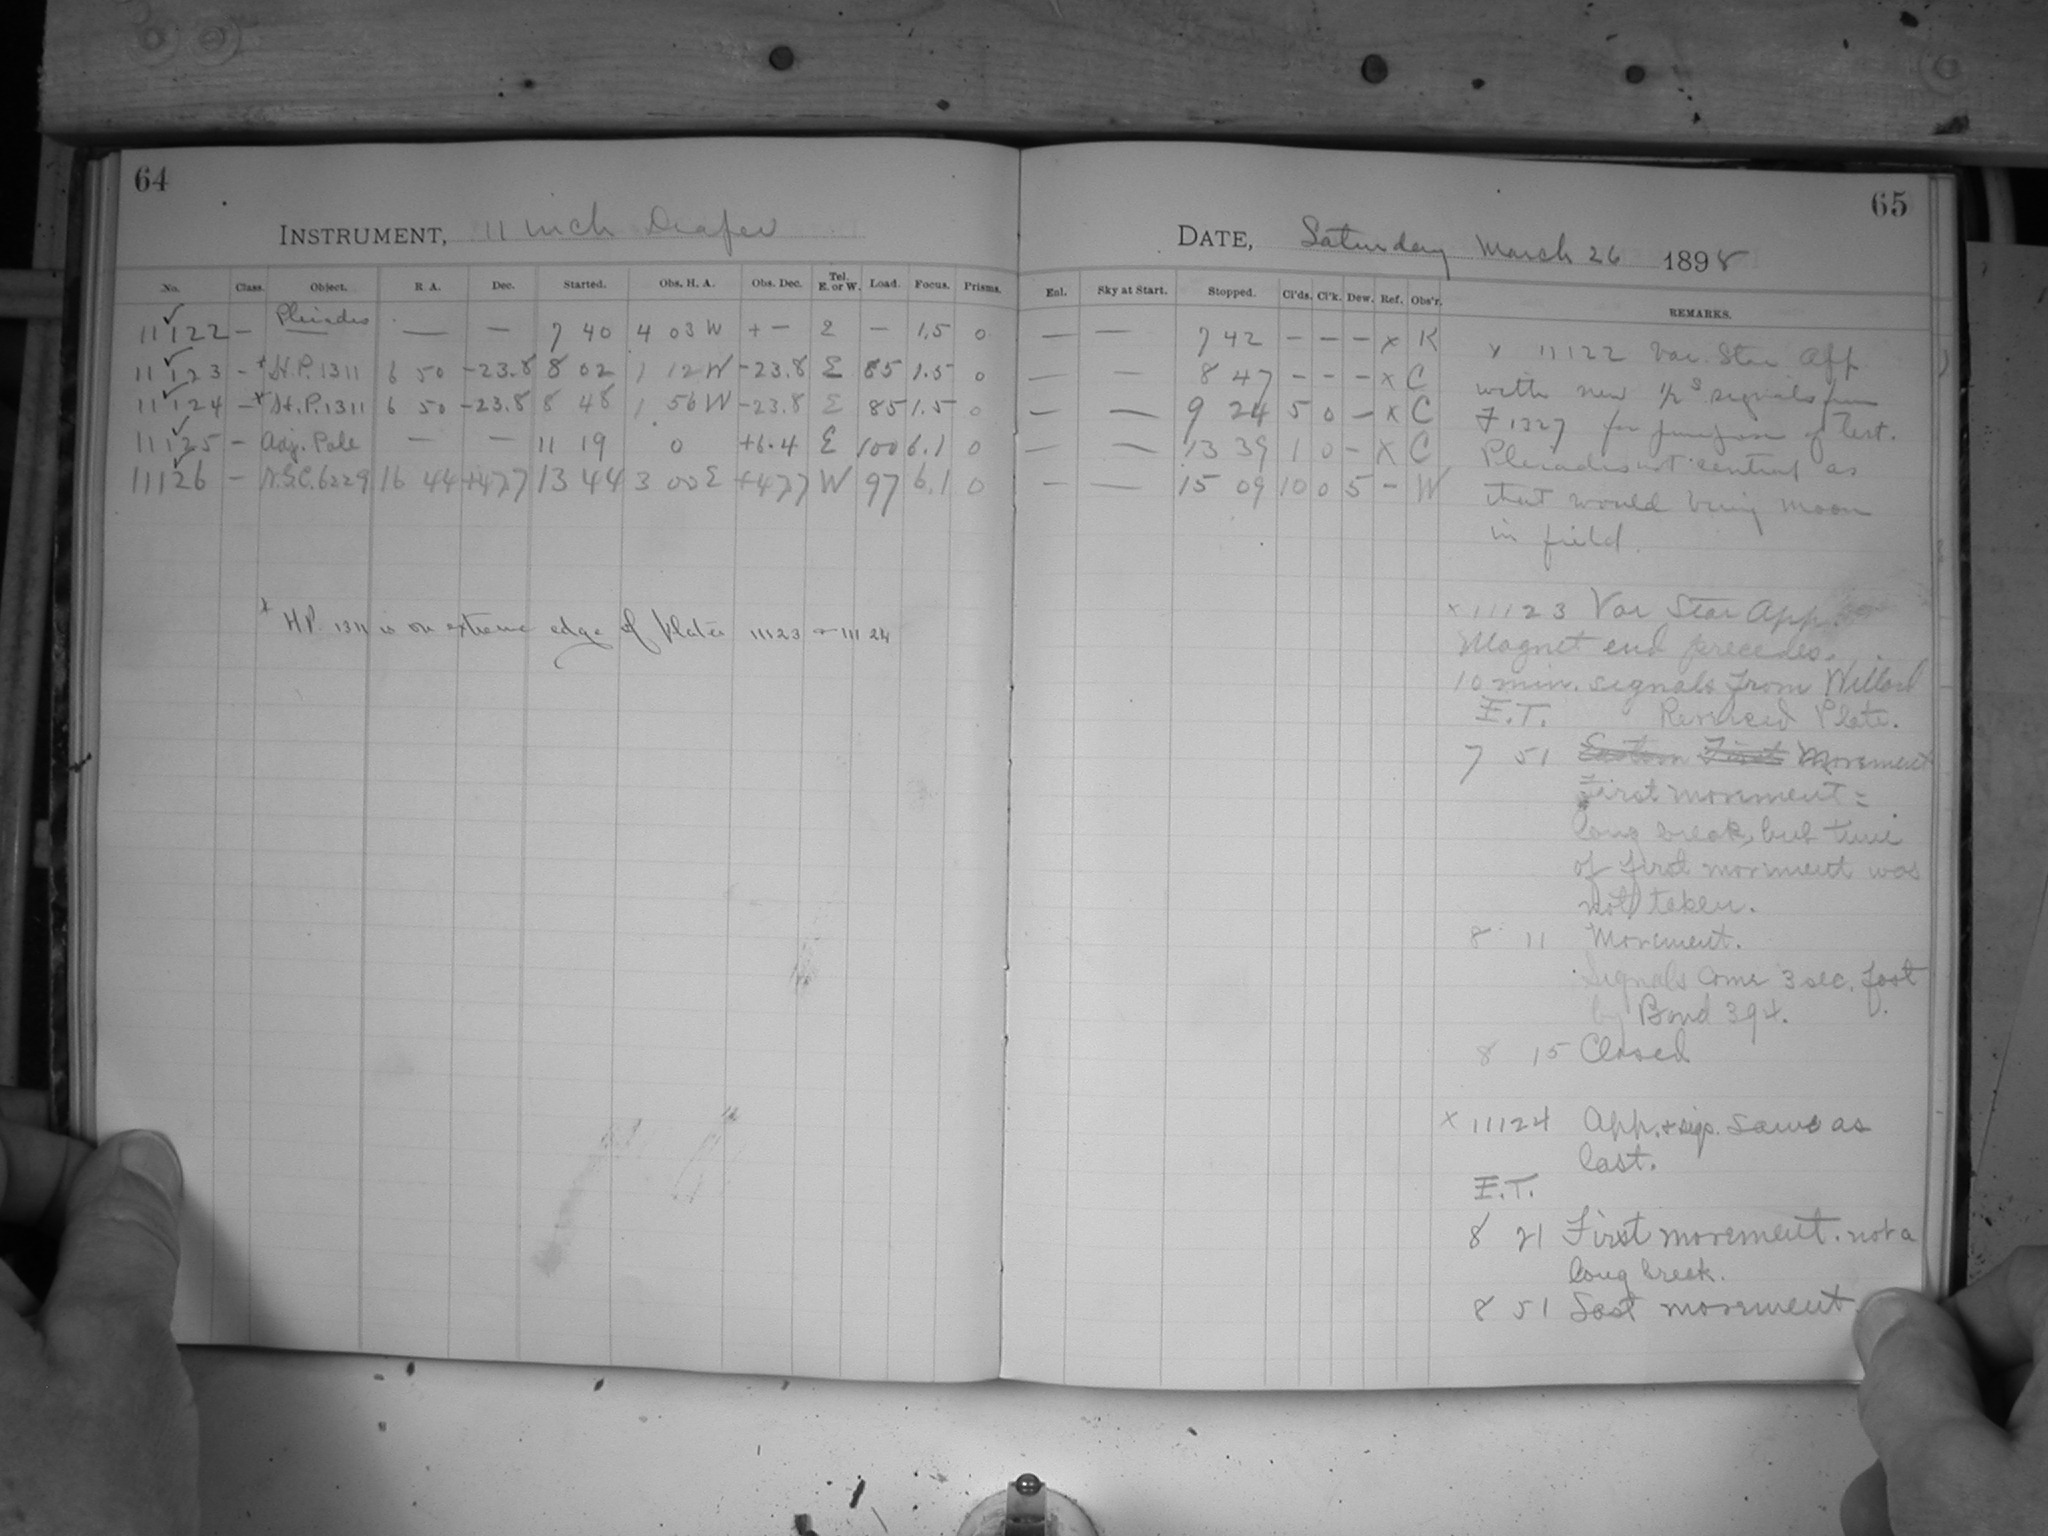 64
INSTRUMENT, 11 inch Draper
No. Class. Object. R. A. Dec. Started. Obs. H. A. Obs. Dec. Tel. E. or W. Load. Focus. Prisms.
11122 — Pleiades — — 7 40 4 03 W + — E — 1.5 0
11123 — * H.P. 1311 6 50 -23.8 8 02 1 12 W -23.8 E 85 1.5 0
11124 — * H.P. 1311 6 50 -23.8 8 48 1 56 W -23.8 E 85 1.5 0
11125 — Adj. Pole — — 11 19 0 +6.4 E 100 6.1 0
11126 — N.G.C. 6229 16 44 +47.7 13 44 3 00 E +47.7 W 97 6.1 0
* H.P. 1311 is on extreme edge of plates 11123 + 11124
65
DATE, Saturday March 26 1898
Enl. Sky at Start. Stopped. Cl'ds. Cl'k. Dew. Ref. Obs'r. REMARKS.
— — 7 42 — — — x K
— — 8 47 — — — x C
— — 9 24 5 0 — x C
— — 13 39 1 0 — x C
— — 15 09 10 0 5 — W
x 11122 Var. Star App
with new 1/2 s signals from
F 1327 for purpose of test.
Pleiades not central as
that would bring moon
in field.
x 11123 Var Star App.
Magnet end precedes.
10 min. signals from Willard
E.T. Reversed Plate.
7 51 Eastern First Movement
First movement =
long break, but time
of first movement was
not taken.
8 11 Movement.
Signals come 3 sec. fast
by Bond 394.
8 15 Closed
x 11124 App. + sigs. same as
last.
E.T.
8 21 First movement. not a
long break.
8 51 Last movement.